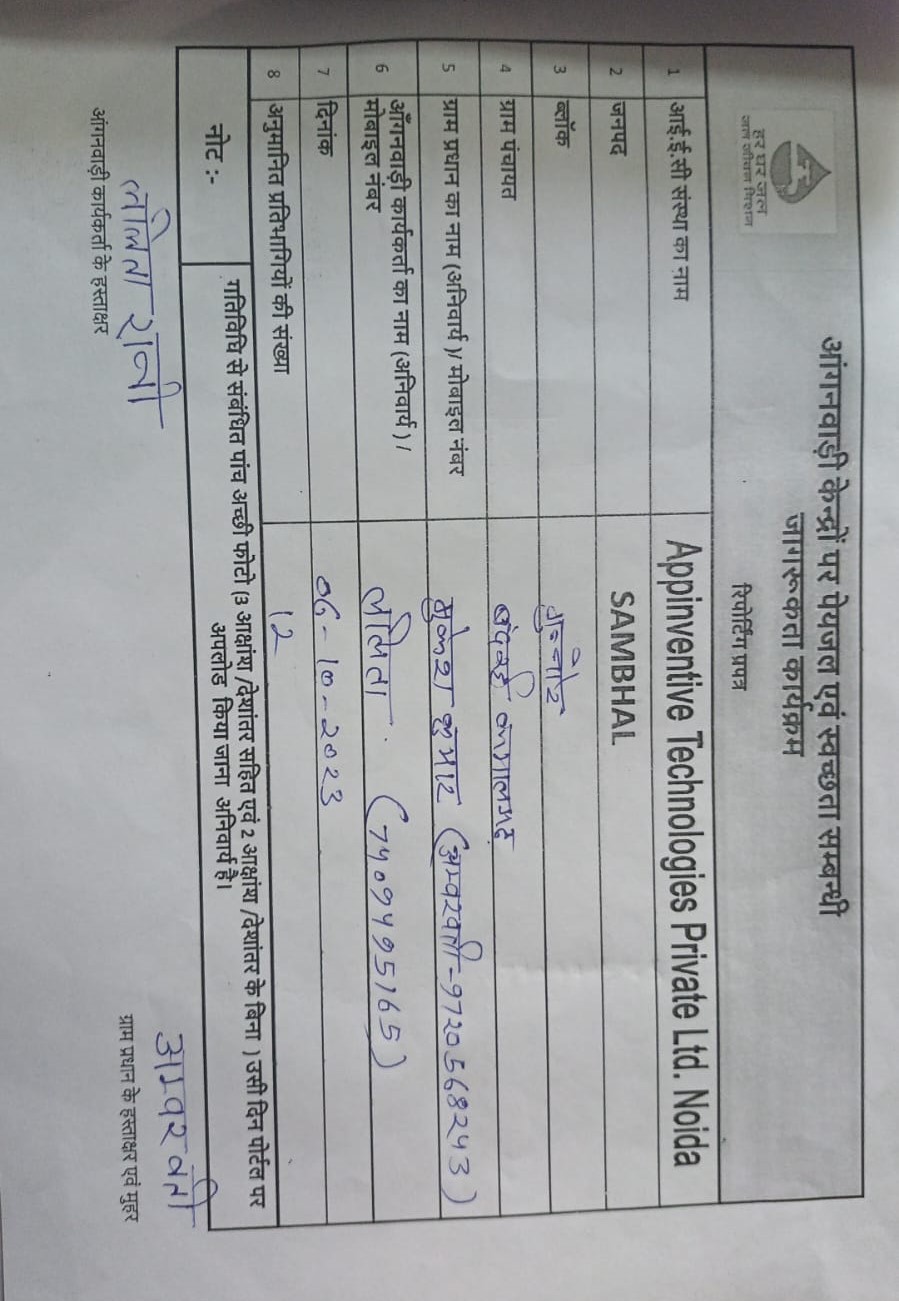 हर घर जल
जल जीवन मिशन
आंगनवाड़ी केन्द्रों पर पेयजल एवं स्वच्छता सम्बन्धी
जागरूकता कार्यक्रम
रिपोर्टिंग प्रपत्र
1 आई.ई.सी संस्था का नाम Appinventive Technologies Private Ltd. Noida
2 जनपद SAMBHAL
3 ब्लॉक गुन्नौर
4 ग्राम पंचायत
5 ग्राम प्रधान का नाम (अनिवार्य )/ मोबाइल नंबर मुकेश कुमार (9720568243)
6 आँगनवाड़ी कार्यकर्ता का नाम (अनिवार्य ) /
मोबाइल नंबर ललिता (7409495165)
7 दिनांक 06-10-2023
8 अनुमानित प्रतिभागियों की संख्या 12
नोट :- गतिविधि से संबंधित पांच अच्छी फोटो (3 आक्षांश /देशांतर सहित एवं 2 आक्षांश /देशांतर के बिना ) उसी दिन पोर्टल पर
अपलोड किया जाना अनिवार्य है।
ललिता रानी
आंगनवाड़ी कार्यकर्ता के हस्ताक्षर
ग्राम प्रधान के हस्ताक्षर एवं मुहर